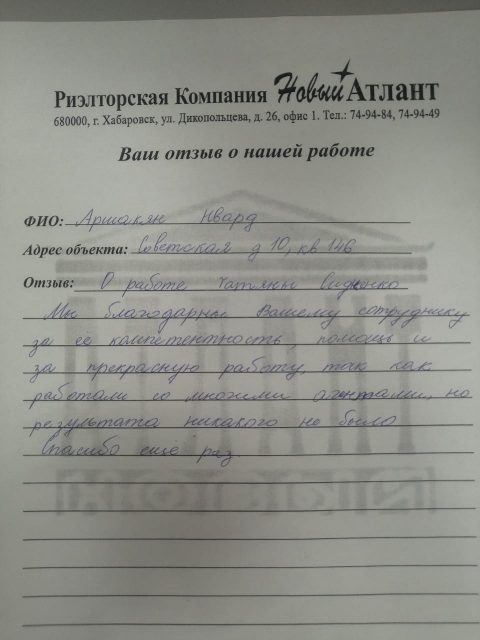 Риэлторская Компания Новый Атлант
680000, г. Хабаровск, ул. Дикопольцева, д. 26, офис 1. Тел.: 74-94-84, 74-94-49
Ваш отзыв о нашей работе
ФИО: Аршакян Нвард
Адрес объекта: Советская д 10, кв 146
Отзыв: О работе Татьяны
Мы благодарны Вашему сотруднику
за её компетентность, помощь и
за прекрасную работу, так как
работали со многими агентами, но
результата никакого не было
Спасибо ещё раз